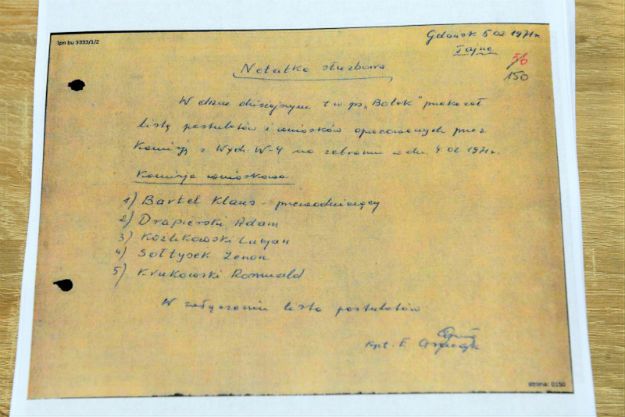 ipn bu 3333/1/2
Gdańsk 5 02 1971r.
Tajne
56
150
Notatka służbowa
W dniu dzisiejszym t w ps „Bolek" przekazał
listę postulatów i wniosków opracowanych przez
Komisję z Wydz. W-4 na zebraniu w dn. 4 02 1971r.
Komisja wnioskowa
1) Bartel Klaus - przewodniczący
2) Drapierski Adam
3) Kozlikowski Lucjan
4) Sołtysek Zenon
5) Krukowski Romuald
W załączeniu lista postulatów
Kpt. E.
strona: 0150